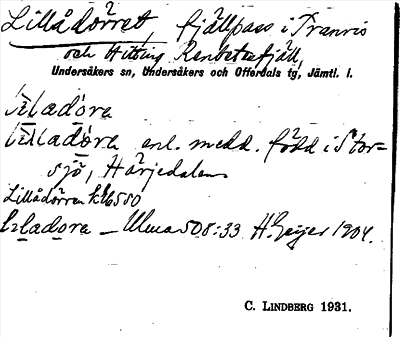 Lillådörret, fjällpass i Tranris
och Hitting Renbetesfjäll,
Undersåkers sn, Undersåkers och Offerdals tg, Jämtl. l.
enl. medd. född i Stor=
sjö, Härjedalen
Lillådörren k 6550
— Ulma 508:33 H. Geijer 1904.
C. LINDBERG 1931.